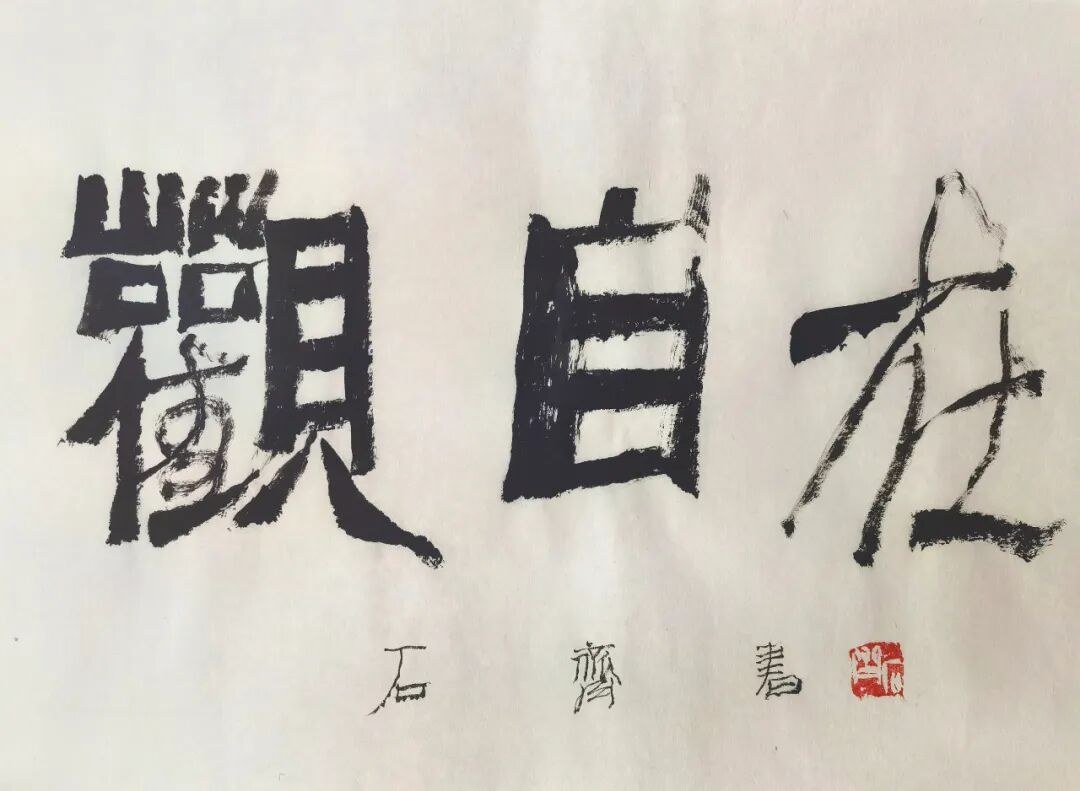 觀自在
石齊書